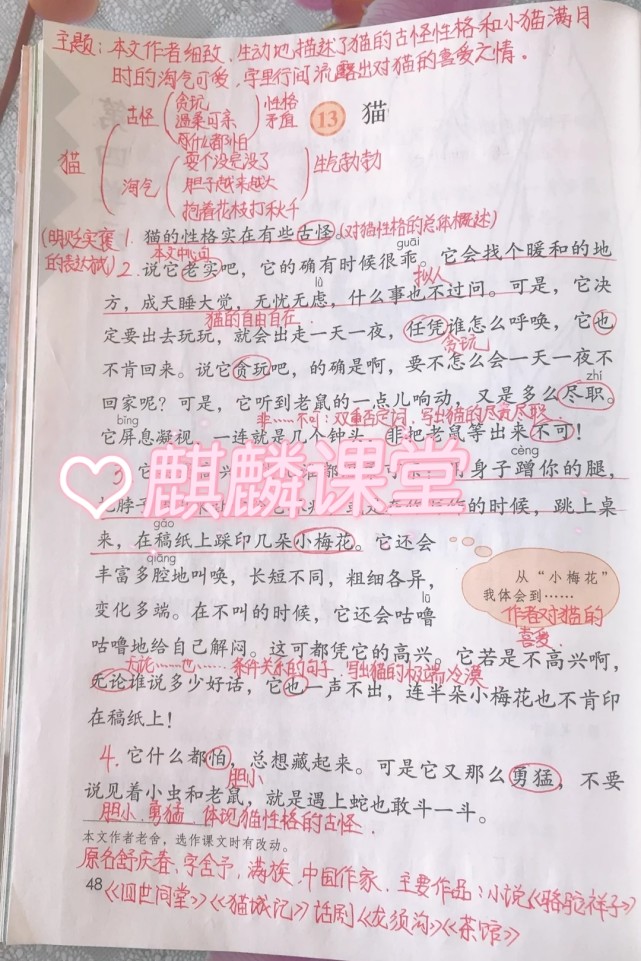 主题：本文作者细致、生动地描述了猫的古怪性格和小猫满月
时的淘气可爱，字里行间流露出对猫的喜爱之情。
猫
古怪
贪玩
温柔可亲
什么都怕
性格
矛盾
淘气
耍个没完没了
胆子越来越大
抱着花枝打秋千
生气勃勃
13 猫
(明贬实褒
的表达式)
1. 猫的性格实在有些古怪。(对猫性格的总体概述)
本文中心句
guāi
2. 说它老实吧，它的确有时候很乖。它会找个暖和的地
lǜ
拟人
方，成天睡大觉，无忧无虑，什么事也不过问。可是，它决
猫的自由自在
定要出去玩玩，就会出走一天一夜，任凭谁怎么呼唤，它也
贪玩
不肯回来。说它贪玩吧，的确是啊，要不怎么会一天一夜不
zhí
回家呢？可是，它听到老鼠的一点儿响动，又是多么尽职。
bǐng
非……不可：双重否定词，写出猫的尽职尽职
它屏息凝视，一连就是几个钟头，非把老鼠等出来不可！
cèng
3. 它 高兴 身子蹭你的腿，
麒麟课堂
的时候，跳上桌
gǎo
来，在稿纸上踩印几朵小梅花。它还会
qiāng
丰富多腔地叫唤，长短不同，粗细各异，
lū
变化多端。在不叫的时候，它还会咕噜
咕噜地给自己解闷。这可都凭它的高兴。它若是不高兴啊，
无论……也……条件关系的句子，写出猫的极端冷漠
无论谁说多少好话，它也一声不出，连半朵小梅花也不肯印
在稿纸上！
从“小梅花”
我体会到……
作者对猫的
喜爱
4. 它什么都怕，总想藏起来。可是它又那么勇猛，不要
胆小
说见着小虫和老鼠，就是遇上蛇也敢斗一斗。
胆小、勇猛，体现猫性格的古怪.
本文作者老舍，选作课文时有改动。
原名舒庆春，字舍予，满族，中国作家，主要作品：小说《骆驼祥子》
48
《四世同堂》《猫城记》话剧《龙须沟》《茶馆》